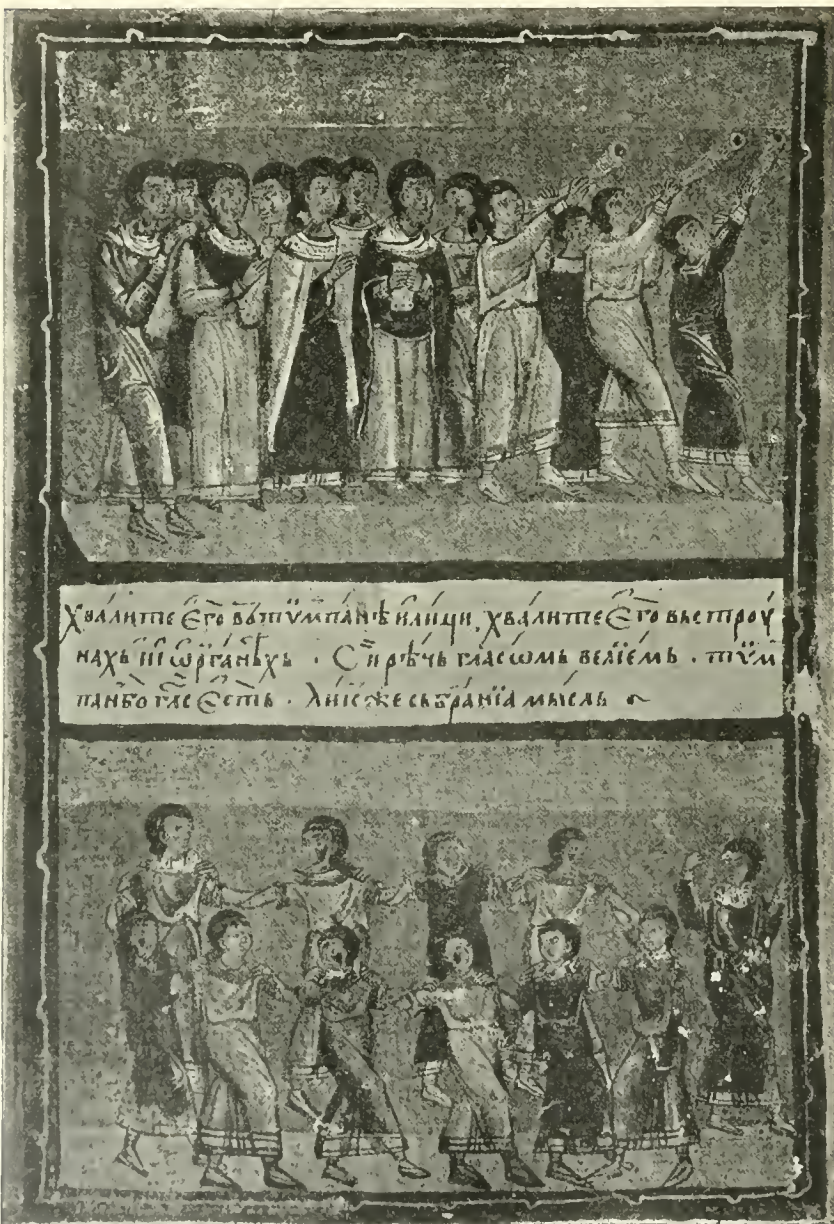 хвали́те Є҆го̀ вътѷмпа́нѣ и҆ли́ци. хвали́те Є҆го̀ въстроꙋ
нахъ и҆ ѡ҆рга́нѣхъ · Си́рѣчь гла́сѡмь ве́лїемь · тѷм
панбо гла́с Є҆сть · ли́кже събра́нїа мы́сль ~